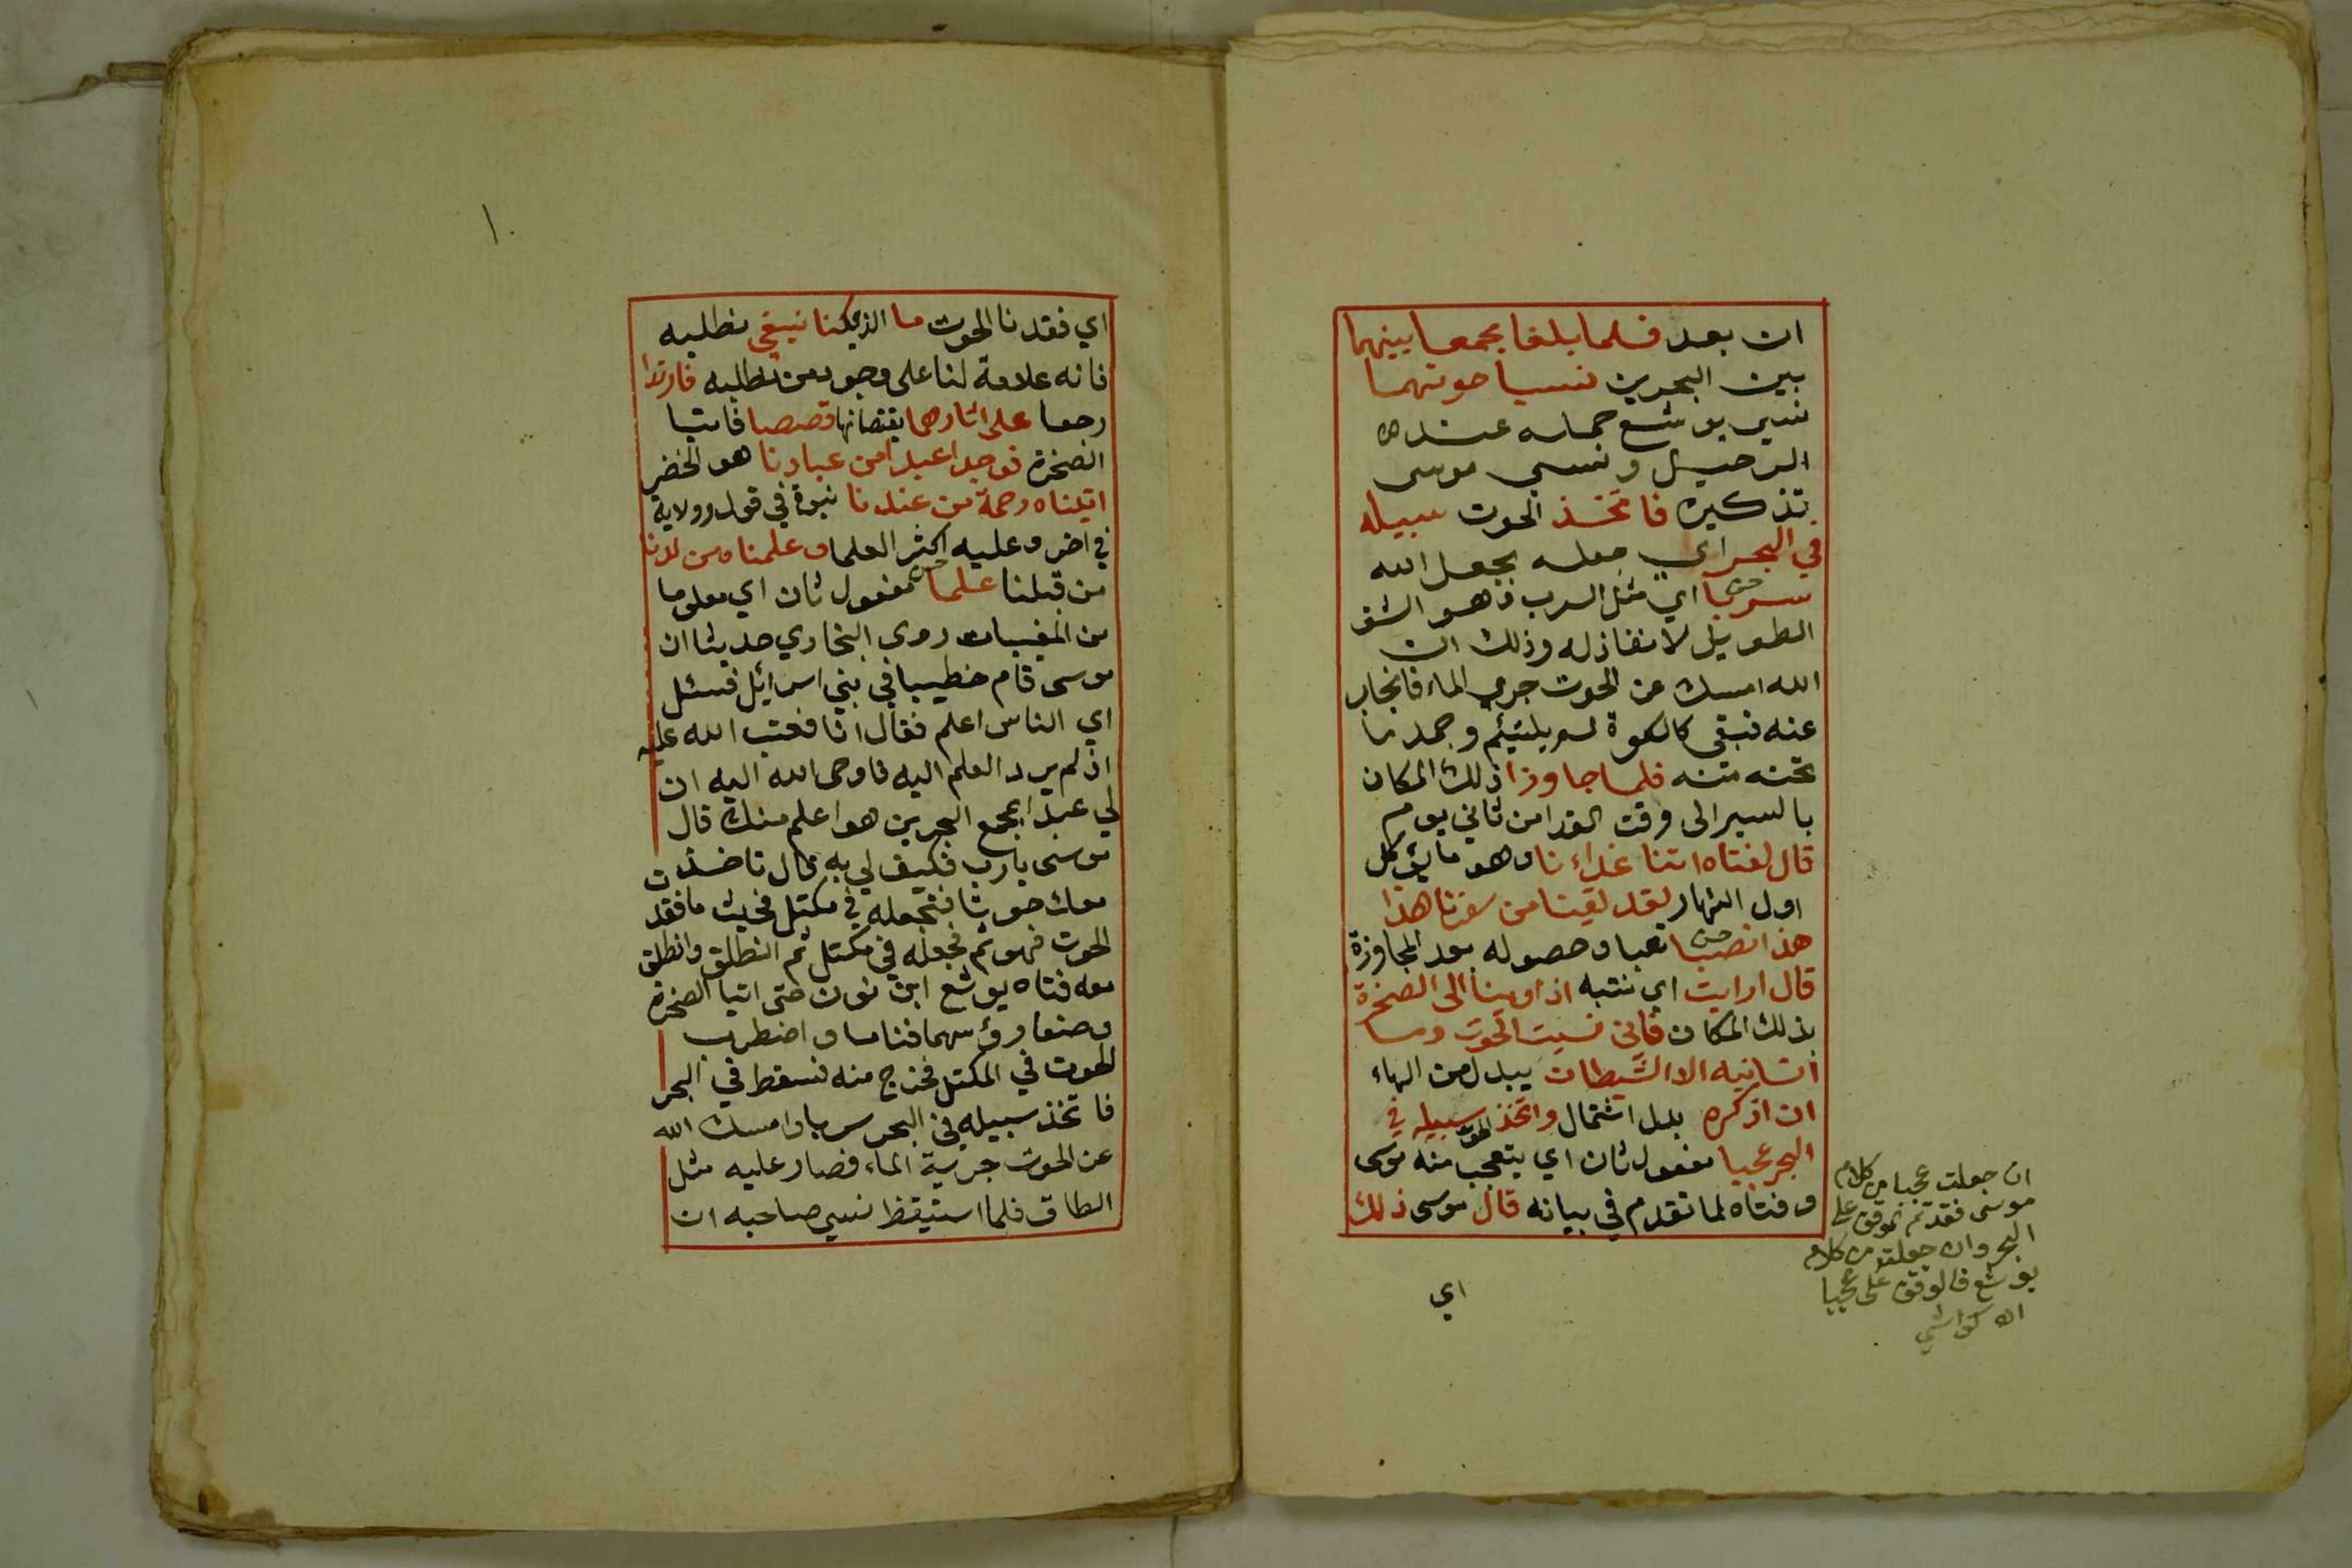 ان بعد فلما بلغا مجمع بينهما
بين البحرين نسيا حوتهما
نسي يوشع حمله عند
الرحيل ونسي موسى
تذكيره فاتخذ الحوت سبيله
في البحر اي جعله بجعل الله
سربا اي مثل السرب وهو الشق
الطويل لا نفاذ له وذلك ان
الله امسك عن الحوت جري الماء فانجاب
عنه فبقي كالكوة لم يلتئم وجمد ما
تحته منه فلما جاوزا ذلك المكان
بالسير الى وقت الغدا من ثاني يوم
قال لفتاه اتنا غداءنا وهو ما يؤكل
اول النهار لقد لقينا من سفرنا هذا
هذا نصبا تعبا وحصوله بعد المجاوزة
قال ارايت اي تنبه اذ اوينا الى الصخرة
بذلك المكان فاني نسيت الحوت وما
انسانيه الا الشيطان يبدل من الهاء
ان اذكره بدل اشتمال واتخذ الحوت سبيله في
البحر عجبا مفعول ثان اي يتعجب منه موسى
وفتاه لما تقدم في بيانه قال موسى ذلك
ان جعلت عجبا من كلام
موسى فقد تم الوقف على
البحر وان جعلته من كلام
يوشع فالوقف على عجبا
اه كواشي
اي
١٠
اي فقدنا الحوت ما الذي كنا نبغي نطلبه
فانه علامة لنا على وجود من نطلبه فارتدا
رجعا على اثارهما يقتصانها قصصا فاتيا
الصخرة فوجدا عبدا من عبادنا هو الخضر
اتيناه رحمة من عندنا نبوة في قول وولاية
في اخر وعليه اكثر العلما وعلمناه من لدنا
من قبلنا علما مفعول ثان اي معلوما
من المغيبات روى البخاري حديثا ان
موسى قام خطيبا في بني اسرائل فسئل
اي الناس اعلم فقال انا فعتب الله عليه
اذ لم يرد العلم اليه فاوحى الله اليه ان
لي عبدا بمجمع البحرين هو اعلم منك قال
موسى يا رب فكيف لي به قال تاخذ
معك حوتا فتجعله في مكتل فحيث ما فقد
الحوت فهو ثم فجعله في مكتل ثم انطلق وانطلق
معه فتاه يوشع ابن نون حتى اتيا الصخرة
وضعا رؤسهما فناما واضطرب
الحوت في المكتل فخرج منه فسقط في البحر
فاتخذ سبيله في البحر سربا وامسك الله
عن الحوت جرية الماء فصار عليه مثل
الطاق فلما استيقظ نسي صاحبه ان